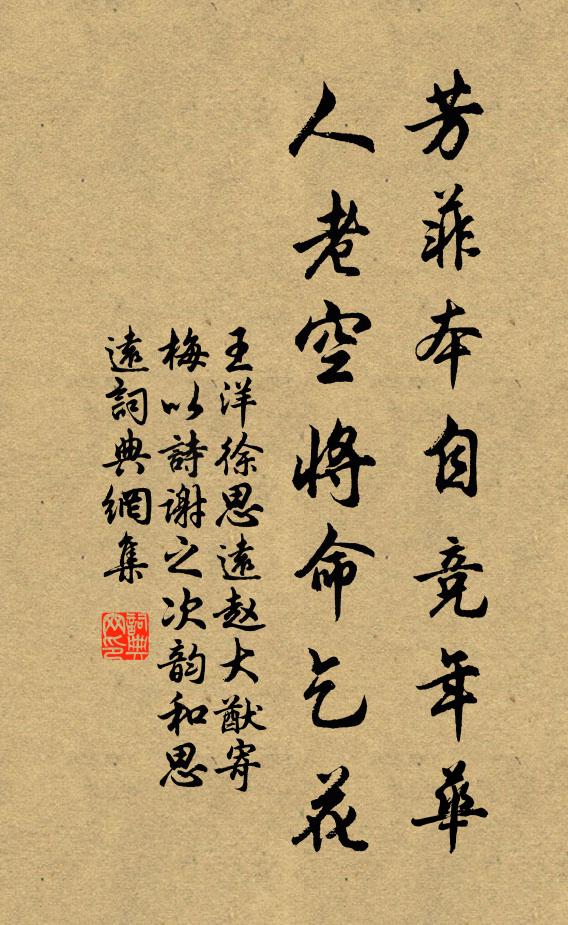 芳菲本自竞年華
人老空將命乞花
王洋徐思遠赵大猷寄
梅以詩謝之次韵和思
遠詞典網集
詞典
网印